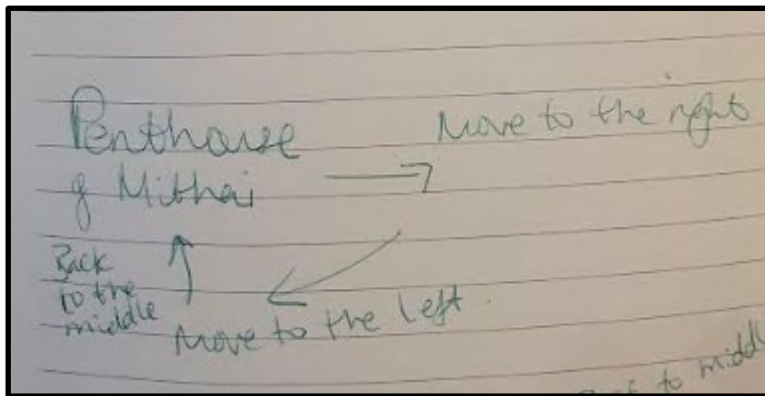 Penthouse
of Mithai
Move to the right
Back
to the
middle
Move to the left.
to middl